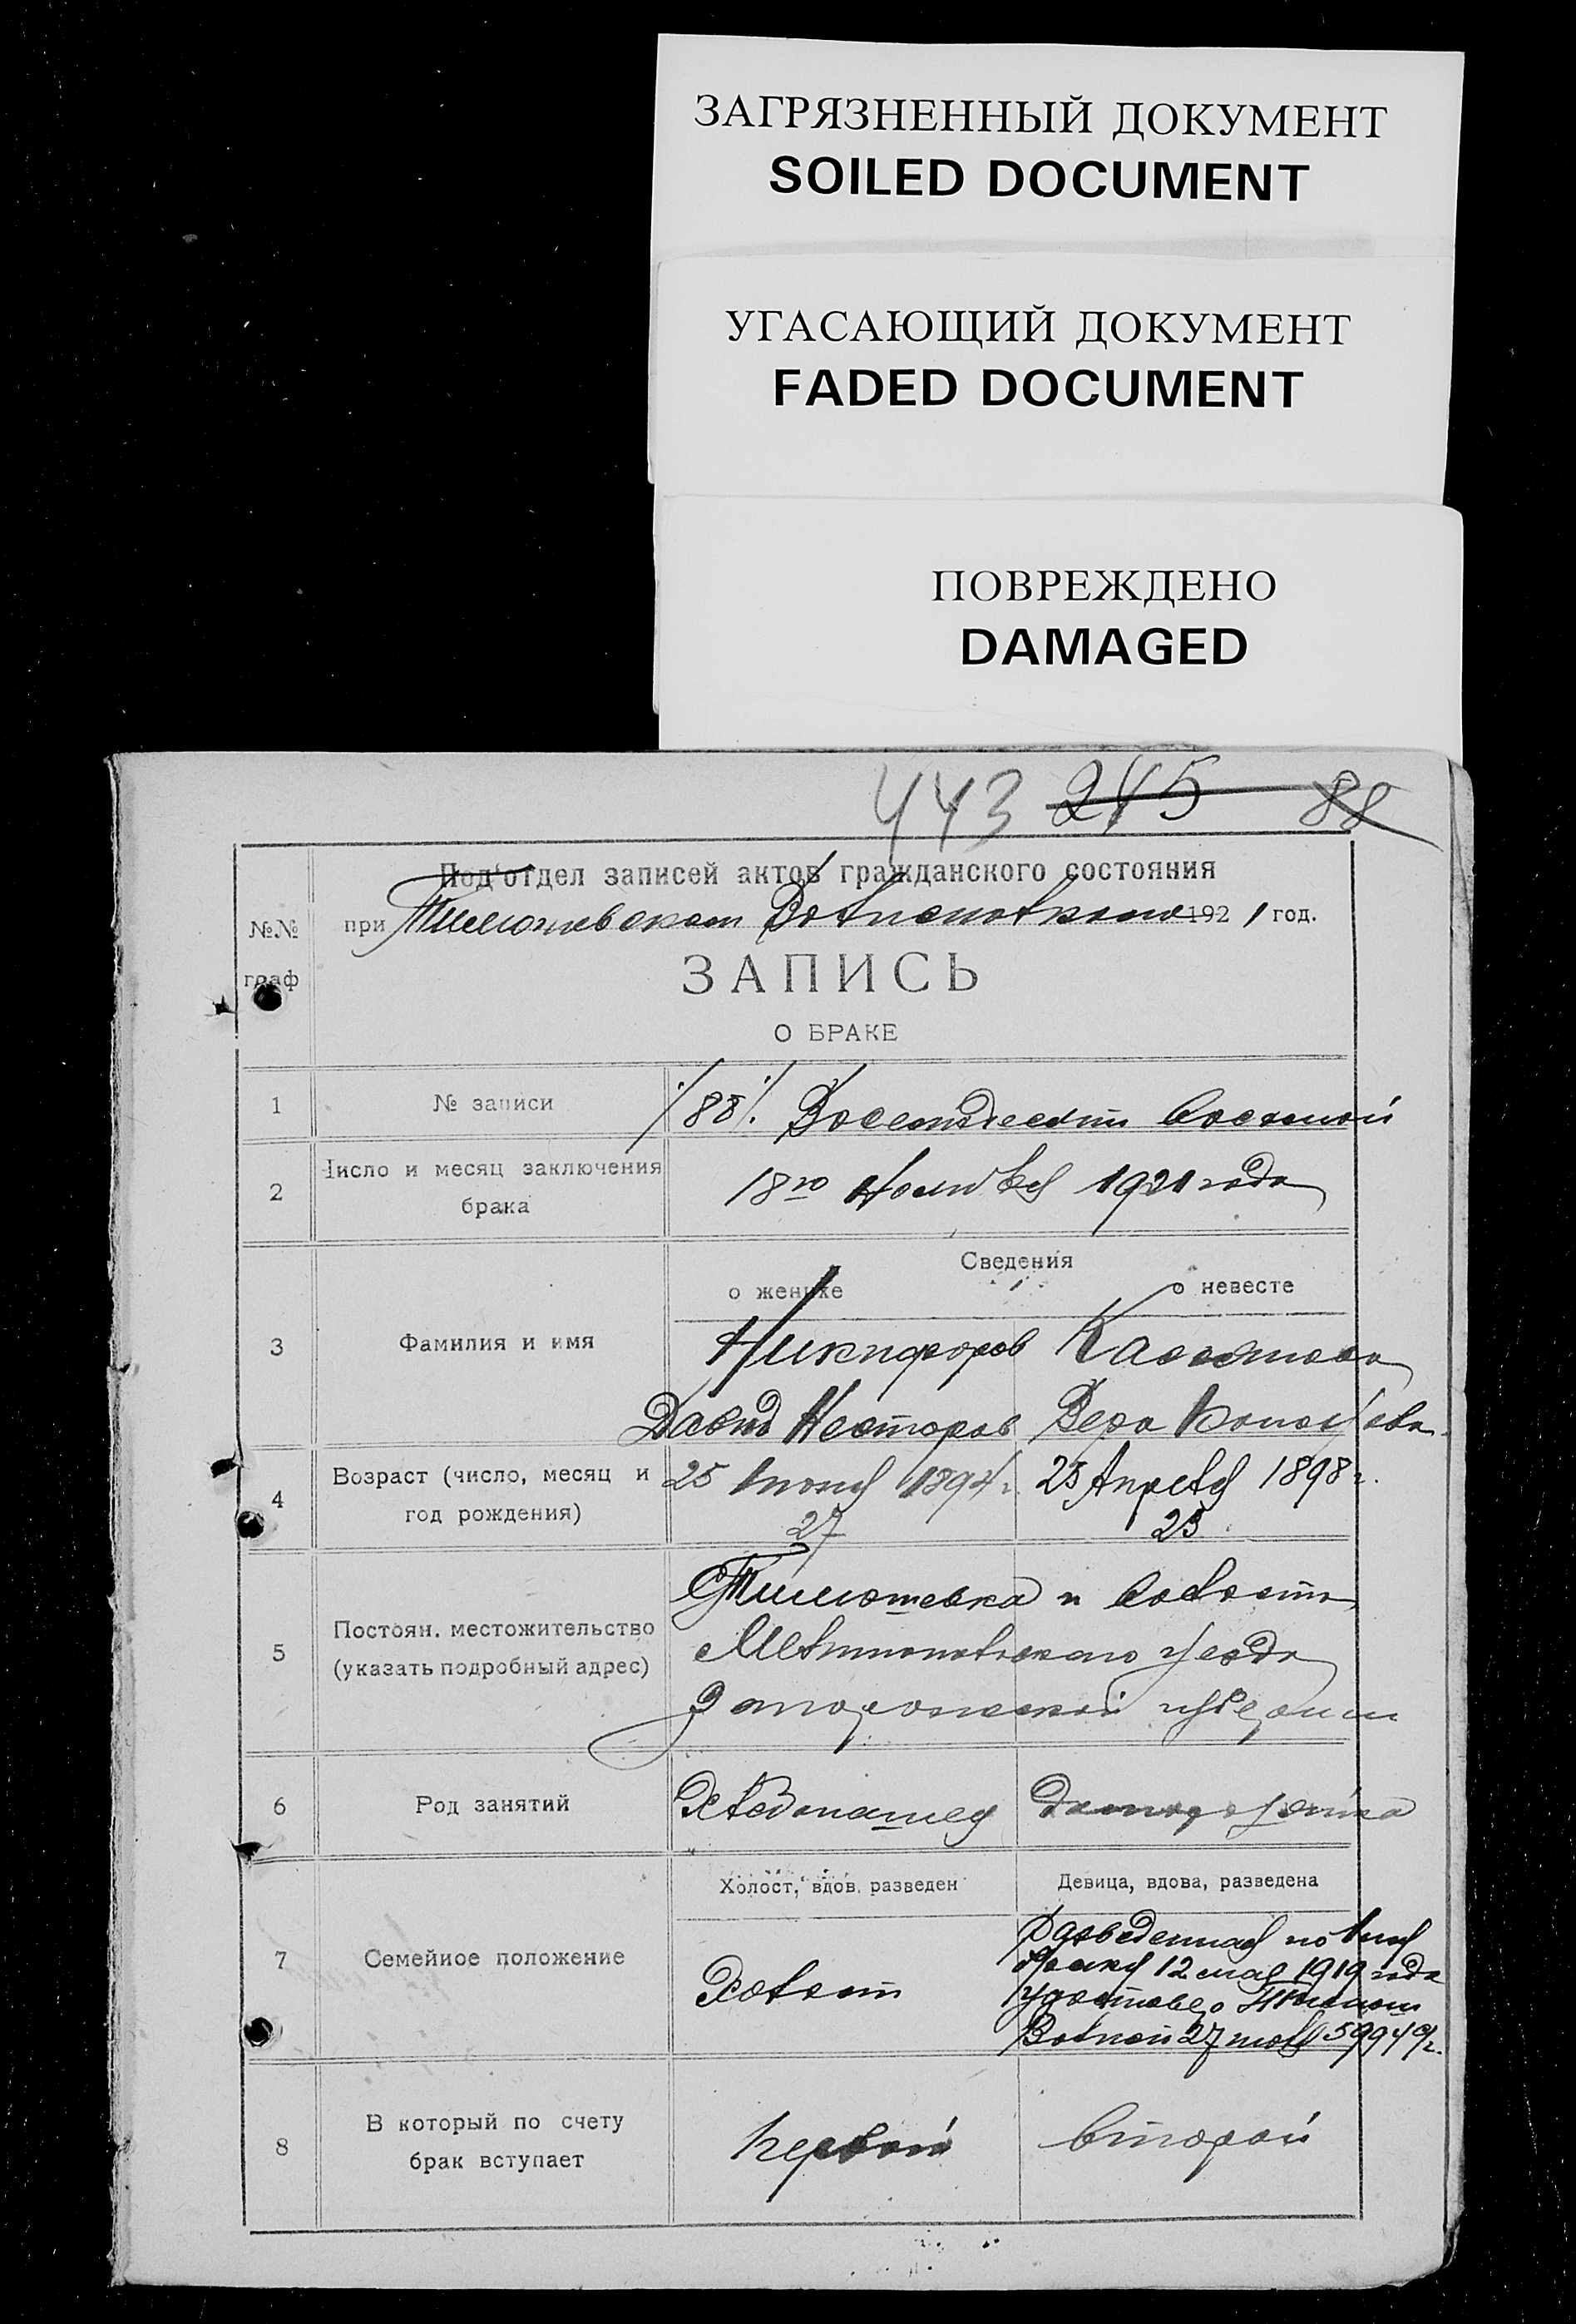 ЗАГРЯЗНЕННЫЙ ДОКУМЕНТ
SOILED DOCUMENT
УГАСАЮЩИЙ ДОКУМЕНТ
FADED DOCUMENT
ПОВРЕЖДЕНО
DAMAGED
443 245 88
Под'отдел записей актов гражданского состояния
№№ при Тимошевском Волисполкоме 192 1 год.
граф
ЗАПИСЬ
О БРАКЕ
1 № записи /88/. Восемьдесят восьмой
2 Число и месяц заключения брака 18го Ноября 1921 года
Сведения
о женихе о невесте
3 Фамилия и имя Никифоров
Давид Несторов Вера
4 Возраст (число, месяц и год рождения) 25 1894 г. 23 Апреля 1898 г.
27 23
5 Постоян. местожительство (указать подробный адрес) Тимошевка и волости
Мелитопольского уезда
Запорожской губернии
6 Род занятий Хлебопашец
Холост, вдов, разведен Девица, вдова, разведена
7 Семейное положение Холост Разведенная по
12 мая 1919 года
Волной 27
8 В который по счету брак вступает первый второй